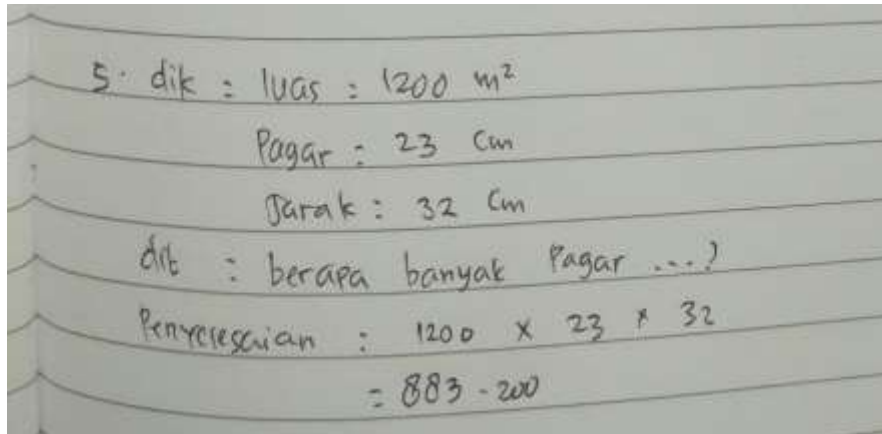 5. dik : luas : 1200 m²
Pagar : 23 Cm
Jarak : 32 Cm
dit : berapa banyak Pagar ...?
Penyelesaian : 1200 x 23 x 32
= 883.200